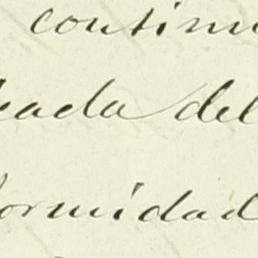 continu
eada del
formidad